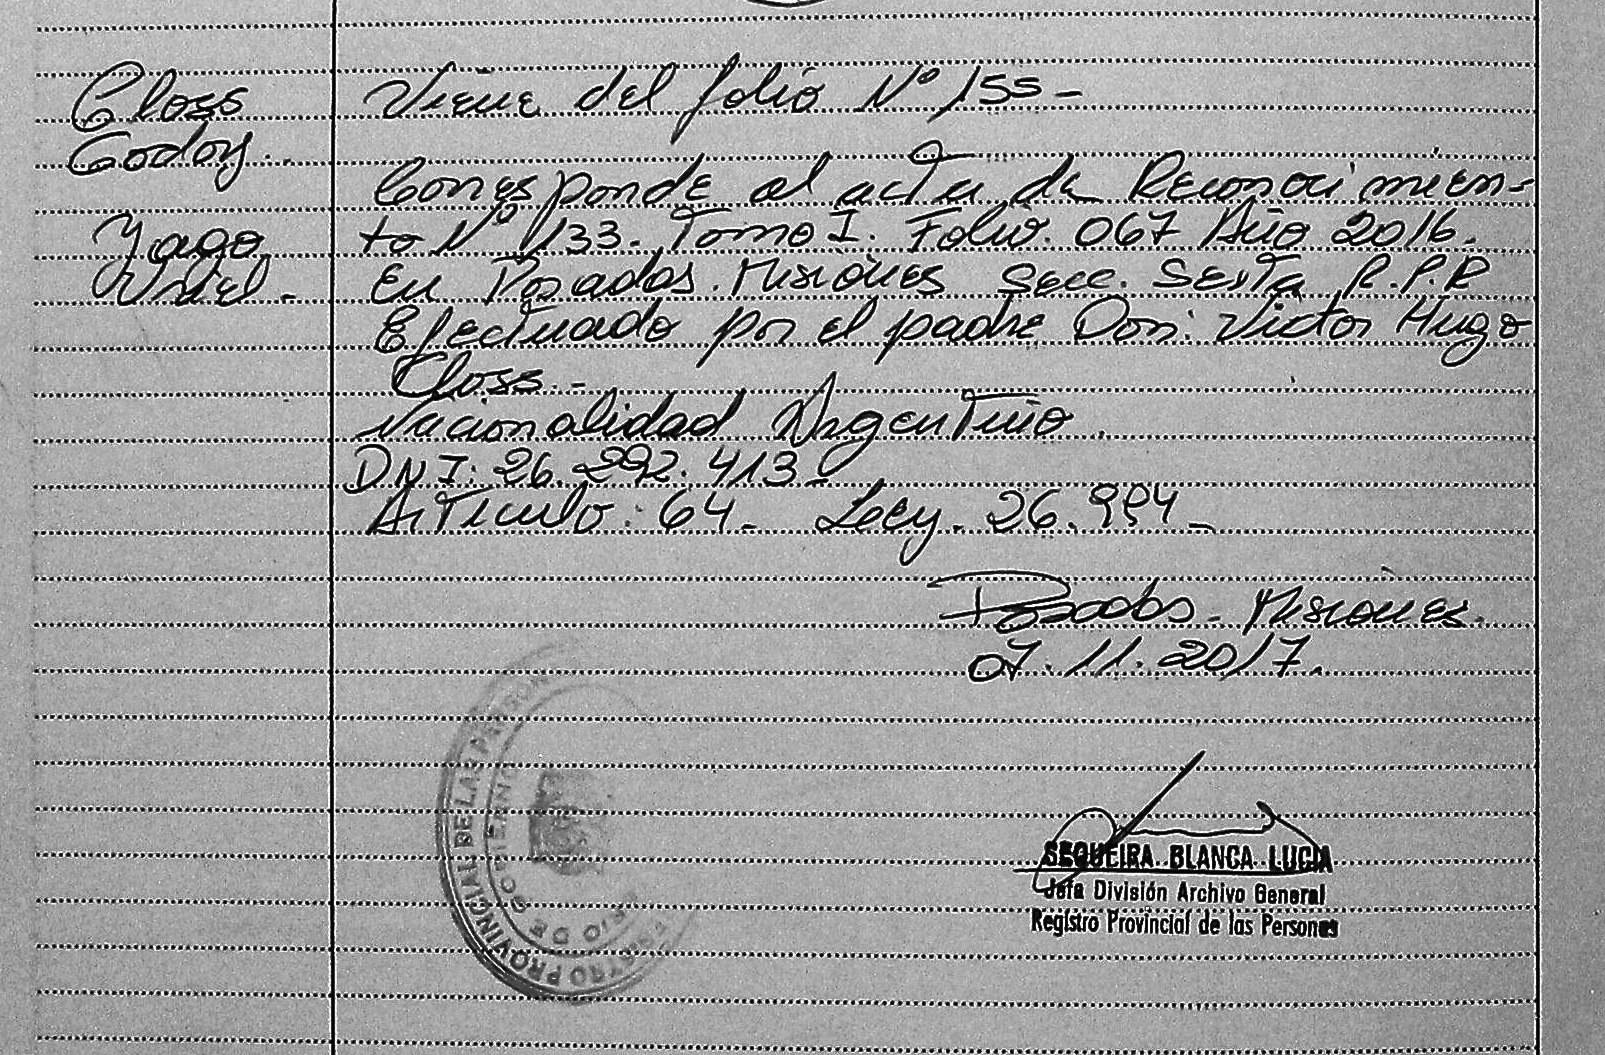 Closs
Godoy.
Yago
Uriel.-
Viene del folio Nº 155-
Corresponde al acta de Reconocimien-
to Nº 133. Tomo I. Folio. 067 Año 2016.
En Posadas. Misiones Secc. Sexta R.P.P
Efectuado por el padre Don: Victor Hugo
Closs.-
Nacionalidad Argentino.
DNI: 26.292.413-
Articulo: 64- Ley. 26.994-
Posadas- Misiones.
07.11.2017.
SEQUEIRA BLANCA LUCIA
Jefa División Archivo General
Registro Provincial de las Personas
PROVINCIAL DE LAS
DE GOBIERNO